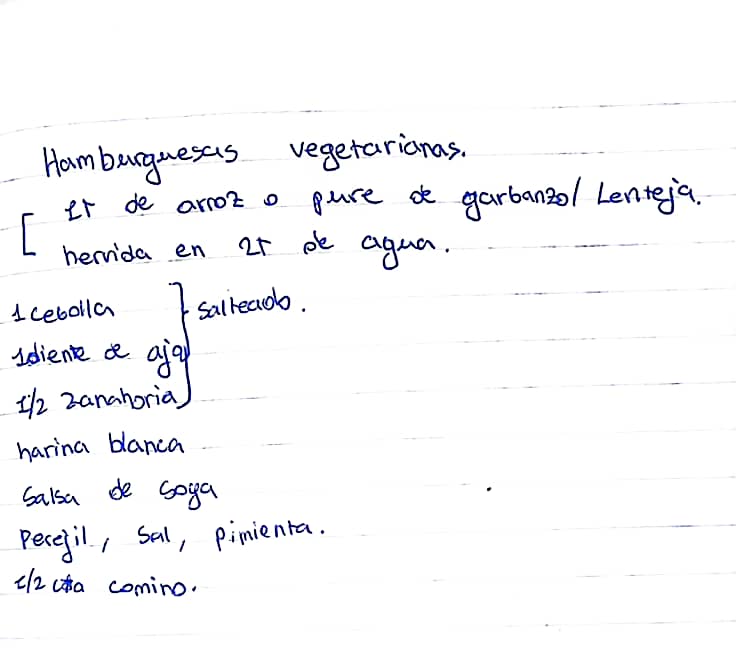 Hamburguesas vegetarianas.
1T de arroz o pure de garbanzo/ Lenteja.
hervida en 2T de agua.
1 cebolla } salteado.
1 diente de ajo
1/2 zanahoria
harina blanca
Salsa de soya
Perejil, Sal, Pimienta.
1/2 cta comino.